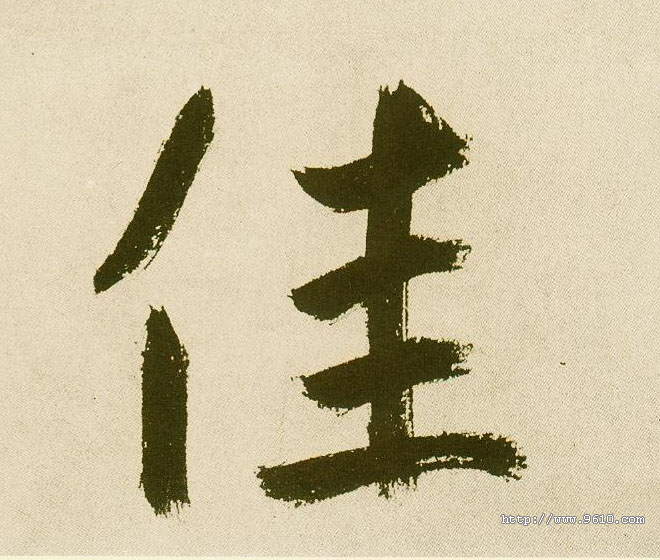 佳
http://www.9610.com